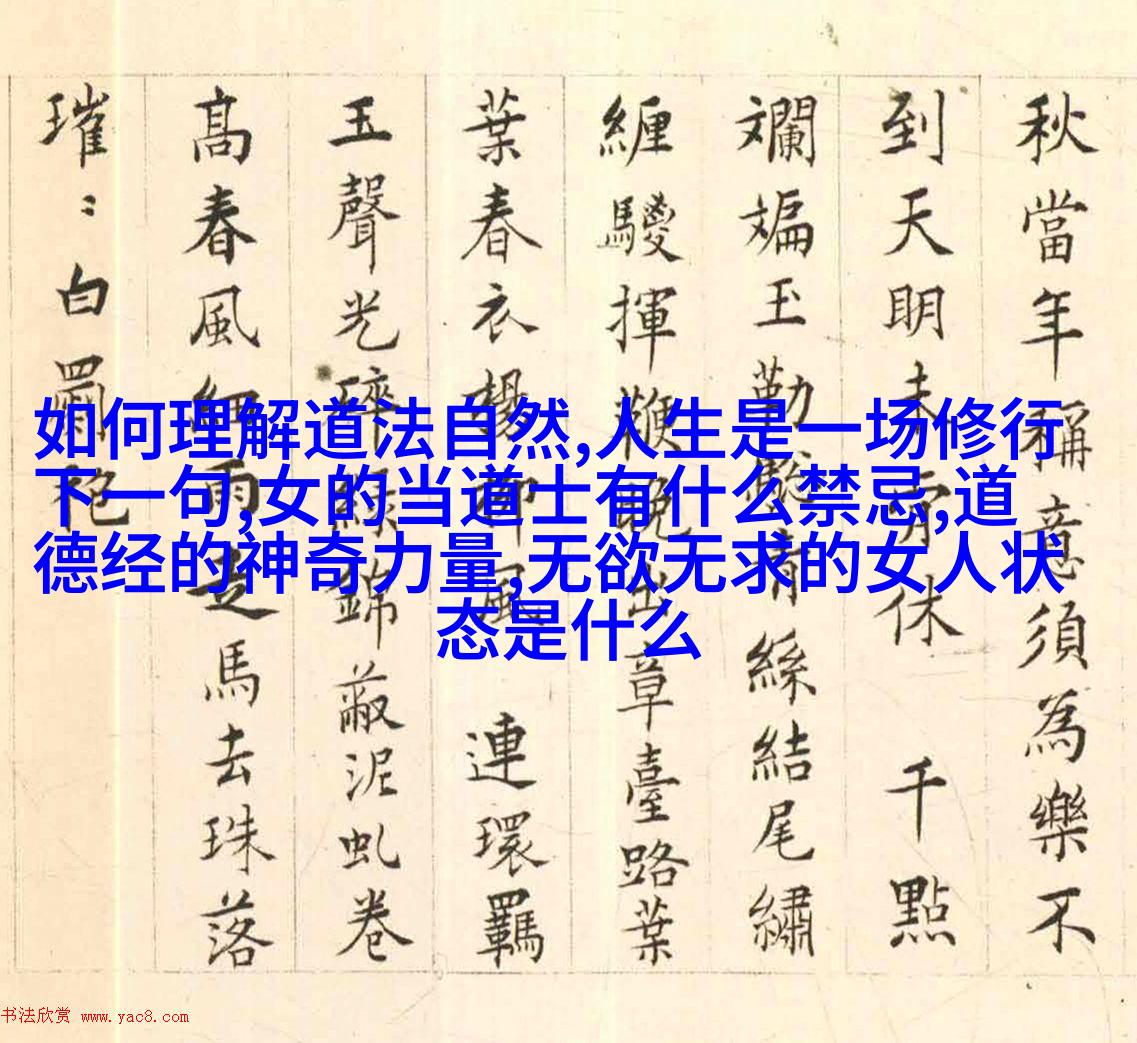 秋當年稱意須為樂不
到天明未肯休 千點
斕斒玉勒驄青絲結尾繡
纏騣揮鞭晚出章臺路葉
葉春衣楊柳風 連環羈
玉聲光碎綠錦蔽泥虬卷
高春風細雨走馬去珠落
璀〻白罽袍
如何理解道法自然,人生是一场修行
下一句,女的当道士有什么禁忌,道
德经的神奇力量,无欲无求的女人状
态是什么
书法欣赏 www.yac8.com